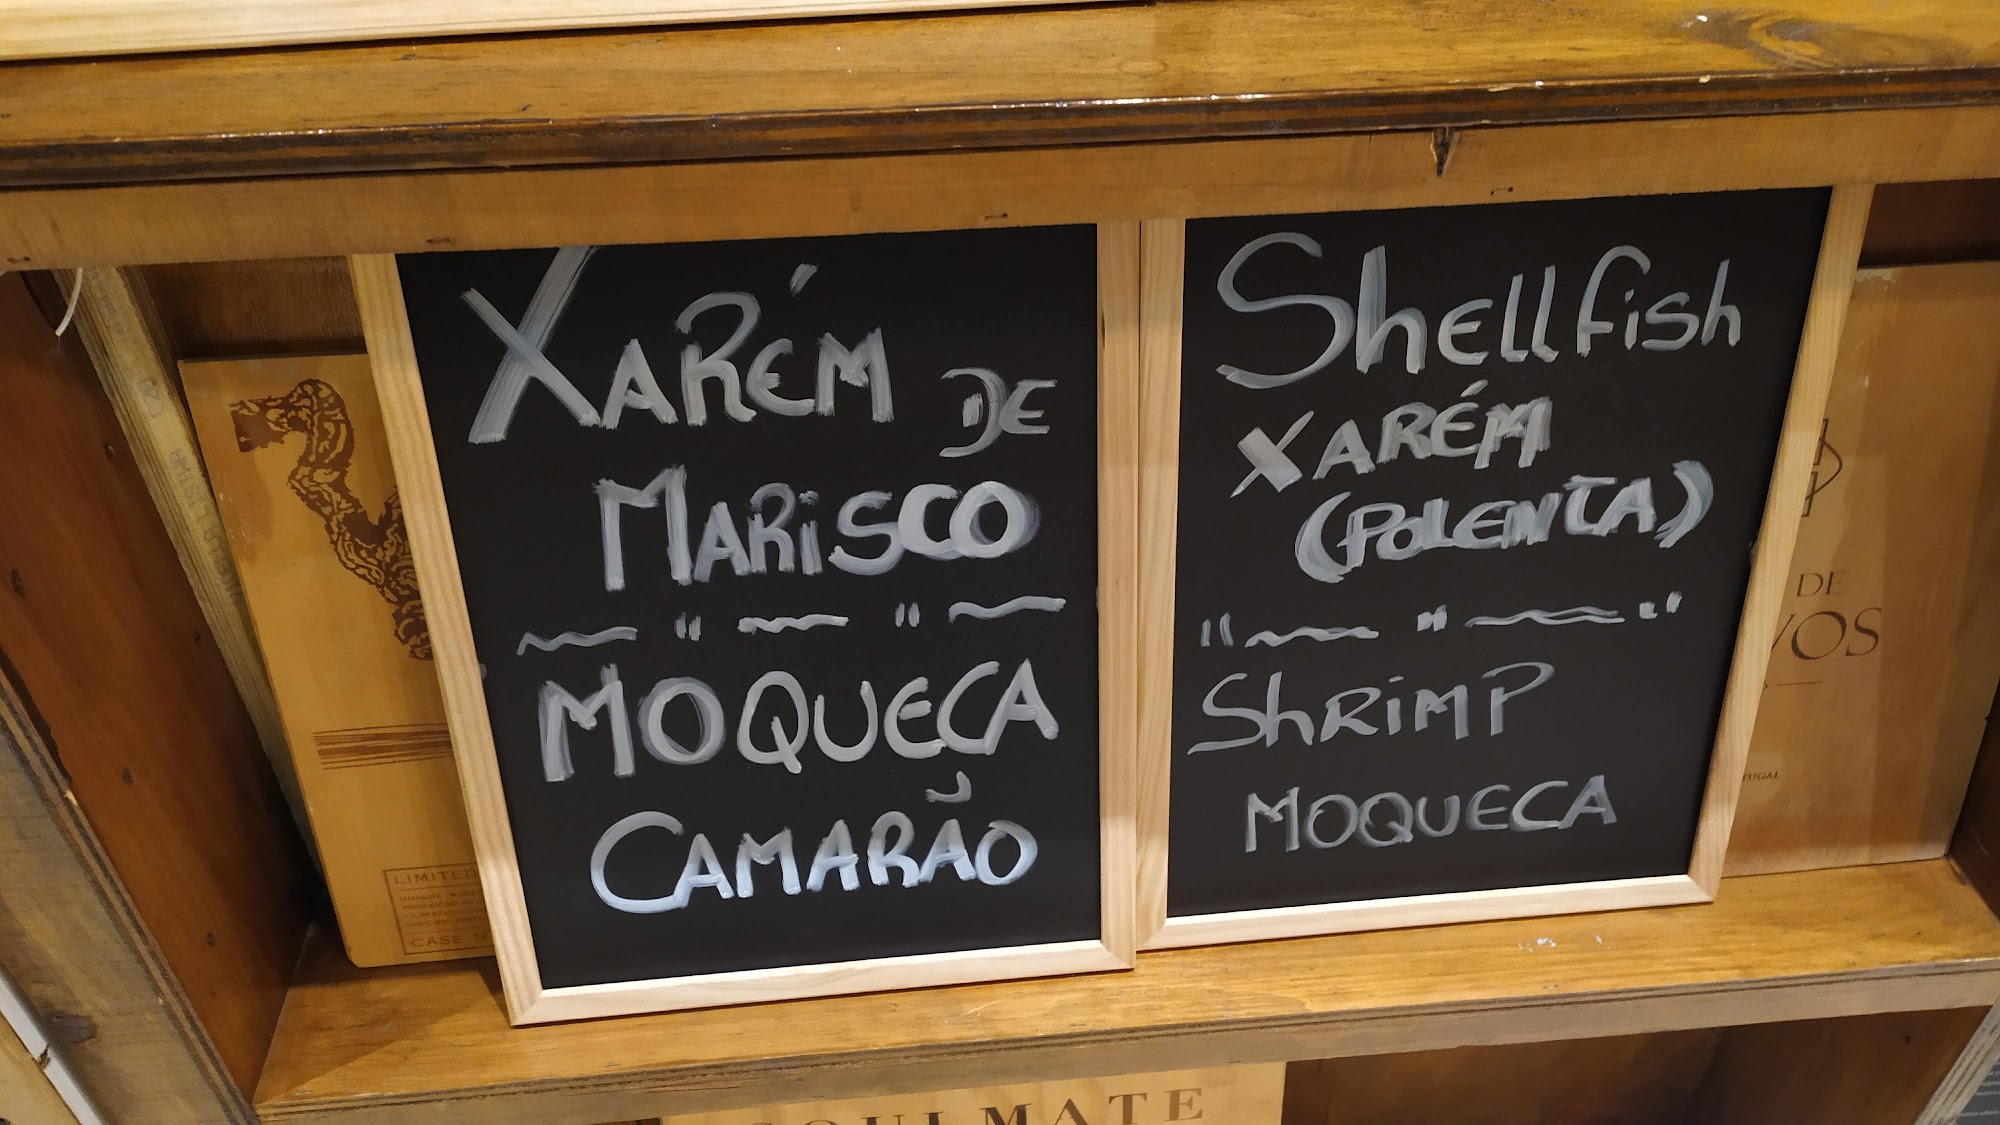 XARÉM DE
MARISCO
MOQUECA
CAMARÃO
Shellfish
XARÉM
(POLENTA)
ShRIMP
MOQUECA
LIMITED
CASE
DE
VOS
TUGAL
SOULMATE